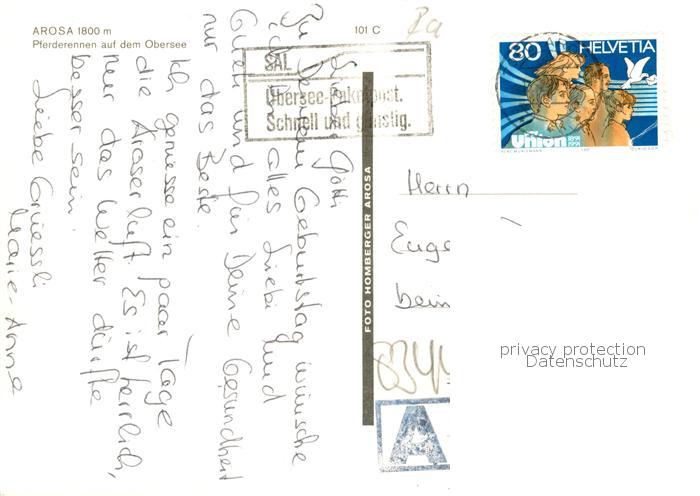 AROSA 1800 m
Pferderennen auf dem Obersee
101 C
SAL
Übersee-Paketpost.
Schnell und günstig.
80 HELVETIA
Union
FOTO HOMBERGER AROSA
Lieber Götti
Zu Deinem Geburtstag wünsche
ich Dir alles Liebi und
Gueti und für Deine Gesundheit
nur das Beste.
Ich geniesse ein paar Tage
die Aroserluft. Es ist herrlich,
nur das Wetter dürfte
besser sein.
Liebe Grüessli
Marie-Anne
Herrn
Euge
beim
8344
A
privacy protection
Datenschutz